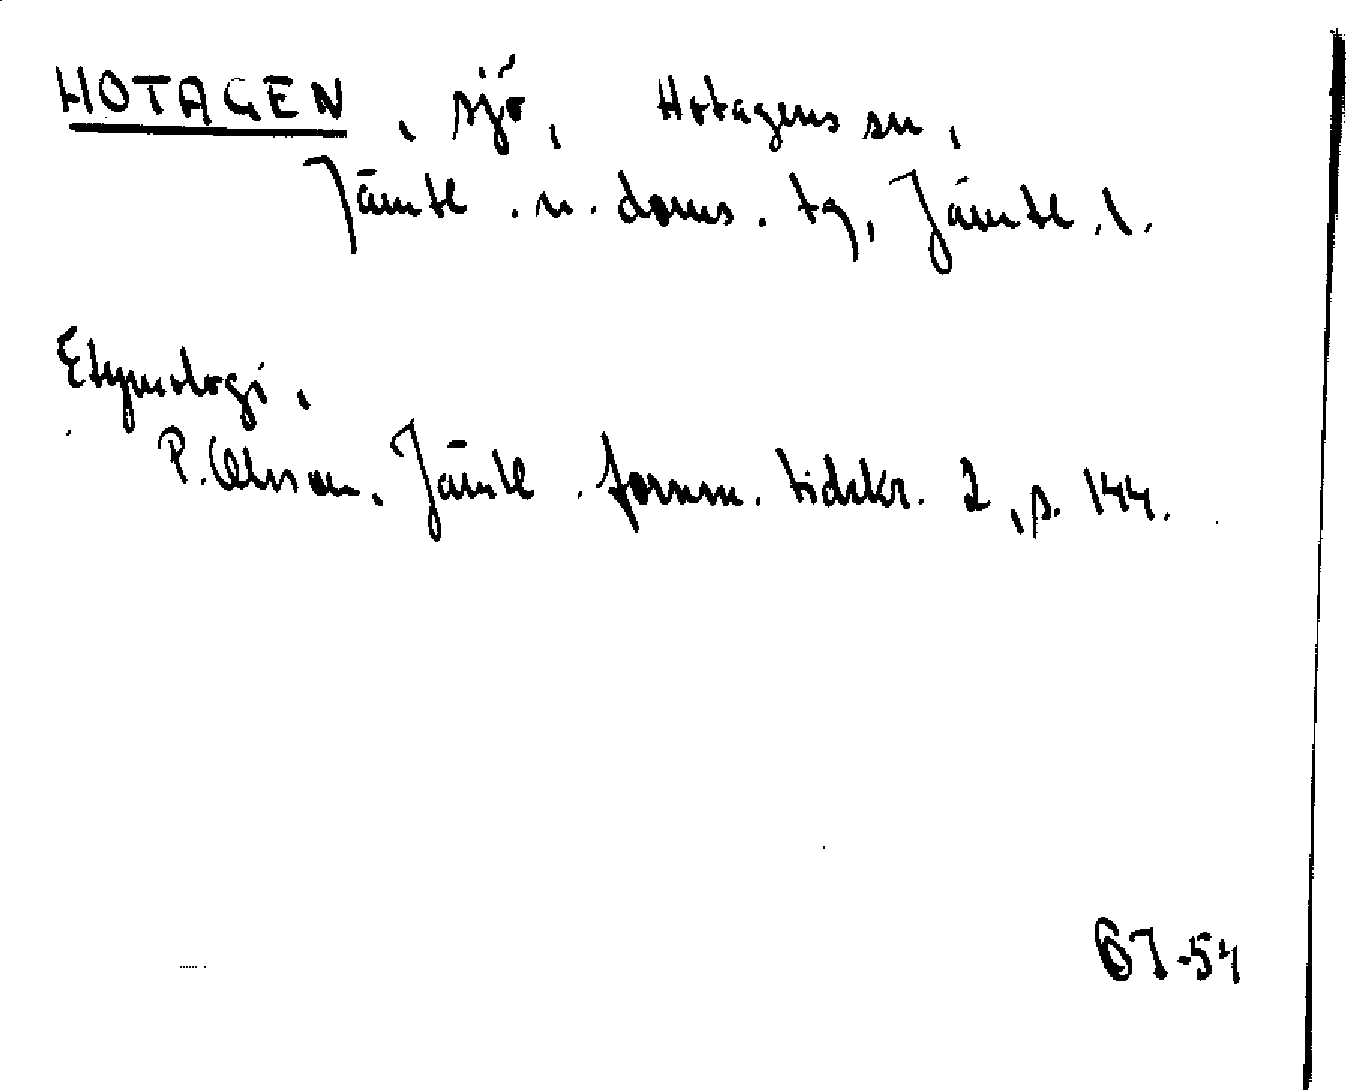 HOTAGEN, sjö, Hotagens sn,
Jämtl. n. doms. tg, Jämtl. l.
Etymologi.
P. Olsson. Jämtl. fornm. tidskr. 2, s. 144.
-54